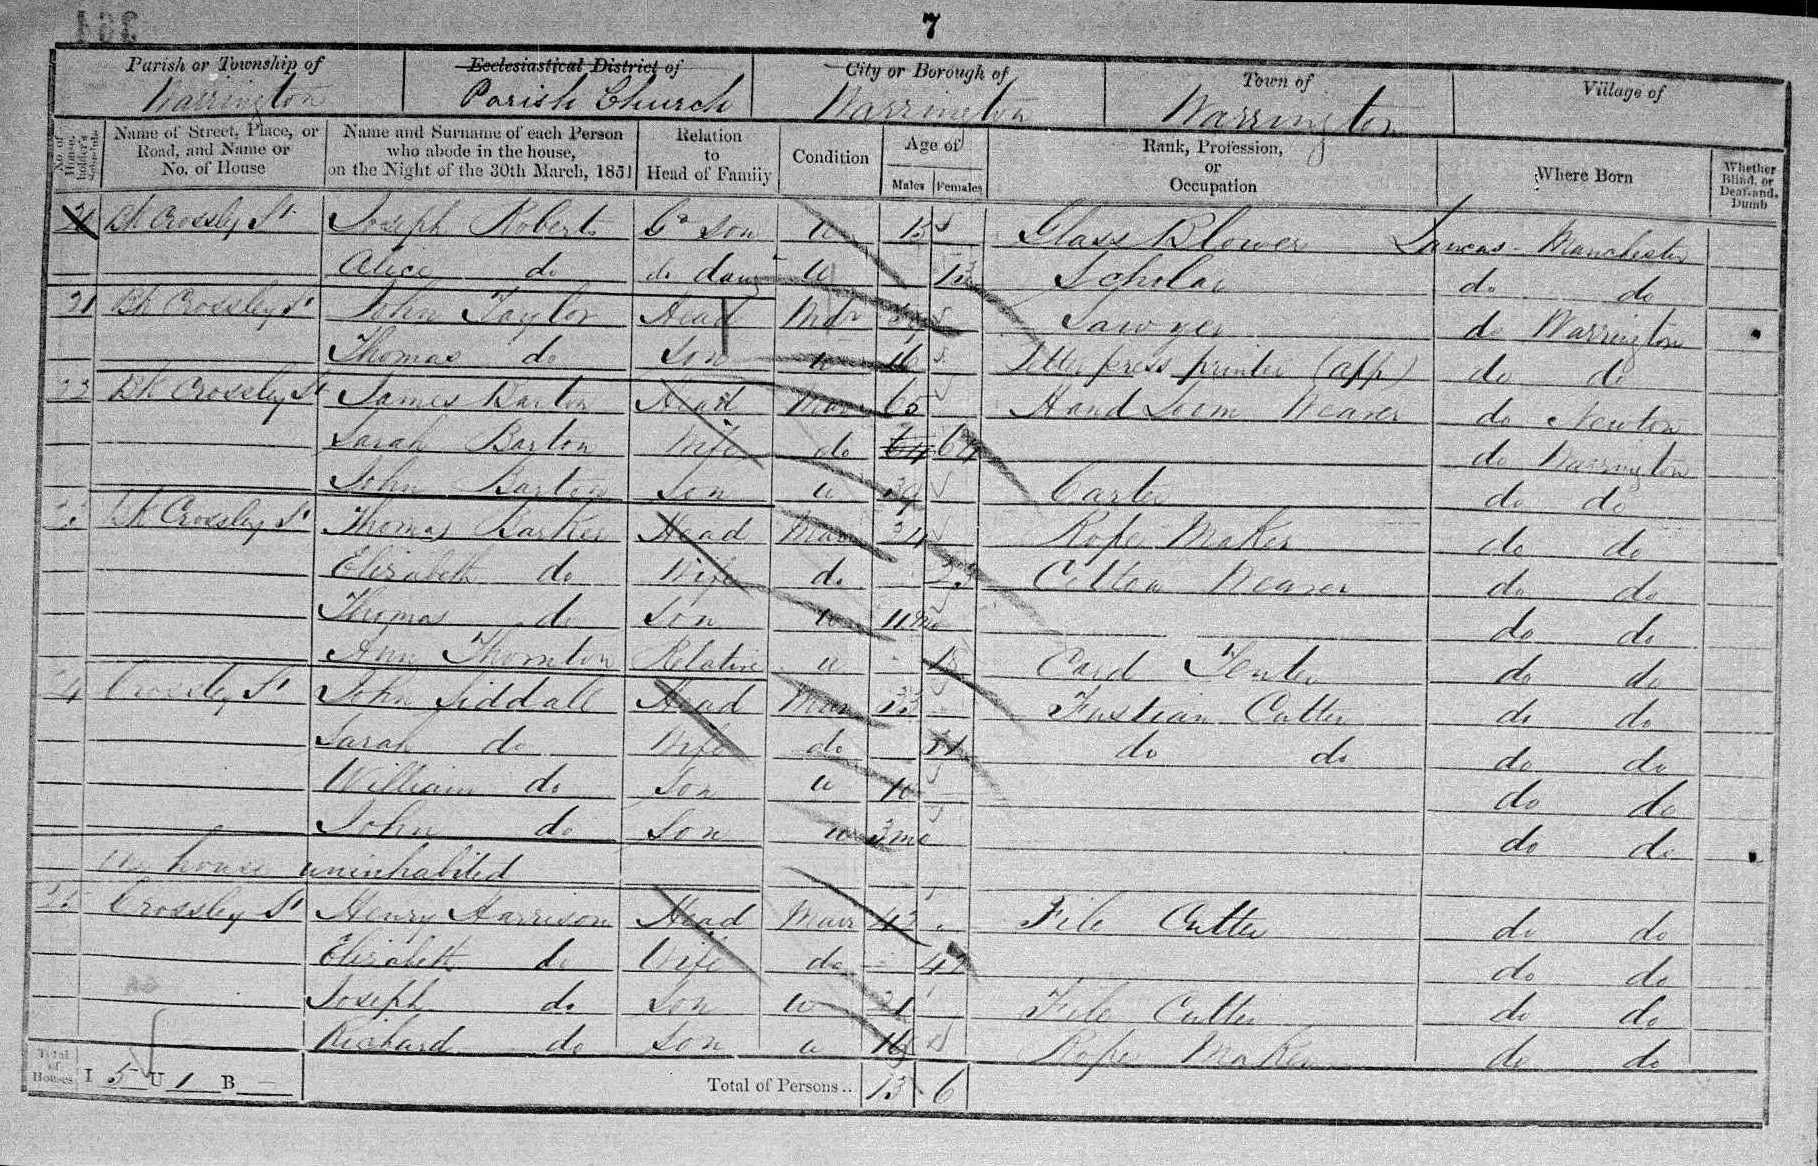 7
Parish or Township of Ecclesiastical District of City or Borough of Town of Village of
Warrington Parish Church Warrington Warrington
No. of House-holder's Schedule Name of Street, Place, or Road, and Name or No. of House Name and Surname of each Person who abode in the house, on the Night of the 30th March, 1851 Relation to Head of Family Condition Age of Males Females Rank, Profession, or Occupation Where Born Whether Blind, or Deaf-and-Dumb
Bk Crossley St Joseph Roberts Gd son u 15 Glass Blower Lancas- Manchester
Alice do do daur u 13 Scholar do do
21 Bk Crossley St John Taylor Head Sawyer do Warrington
Thomas do Son u 16 Letter press printer (app) do do
Bk Crossley St James Barton Head Mar 65 Hand Loom Weaver do Newton
Sarah Barton Wife do 64 64 do Warrington
John Barton Son u 39 Carter do do
Bk Crossley St Thomas Barker Head Mar Rope Maker do do
Elizabeth do Wife do 23 Cotton Weaver do do
Thomas do Son u 11 mo do do
Ann Thornton Relative u Card Tenter do do
24 Crossley St John Siddall Head Mar 33 Fustian Cutter do do
Sarah do Wife do 31 do do do do
William do Son u 10 do do
John do Son u 3 mo do do
house uninhabited
25 Crossley St Henry Harrison Head Marr 43 File Cutter do do
Elizabeth do Wife do do do
Joseph do Son u 21 File Cutter do do
Richard do Son u 16 Rope Maker do do
Total of Houses I 5 U 1 B — Total of Persons.. 13 6